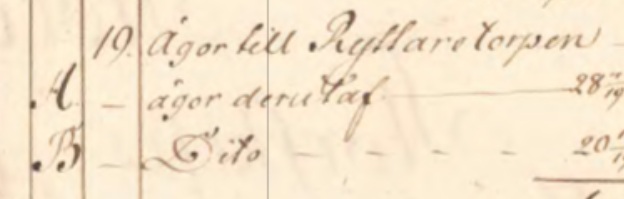 19. Ägor till Ryttaretorpen
A. – ägor derutaf 28
B – Dito – – – – 20